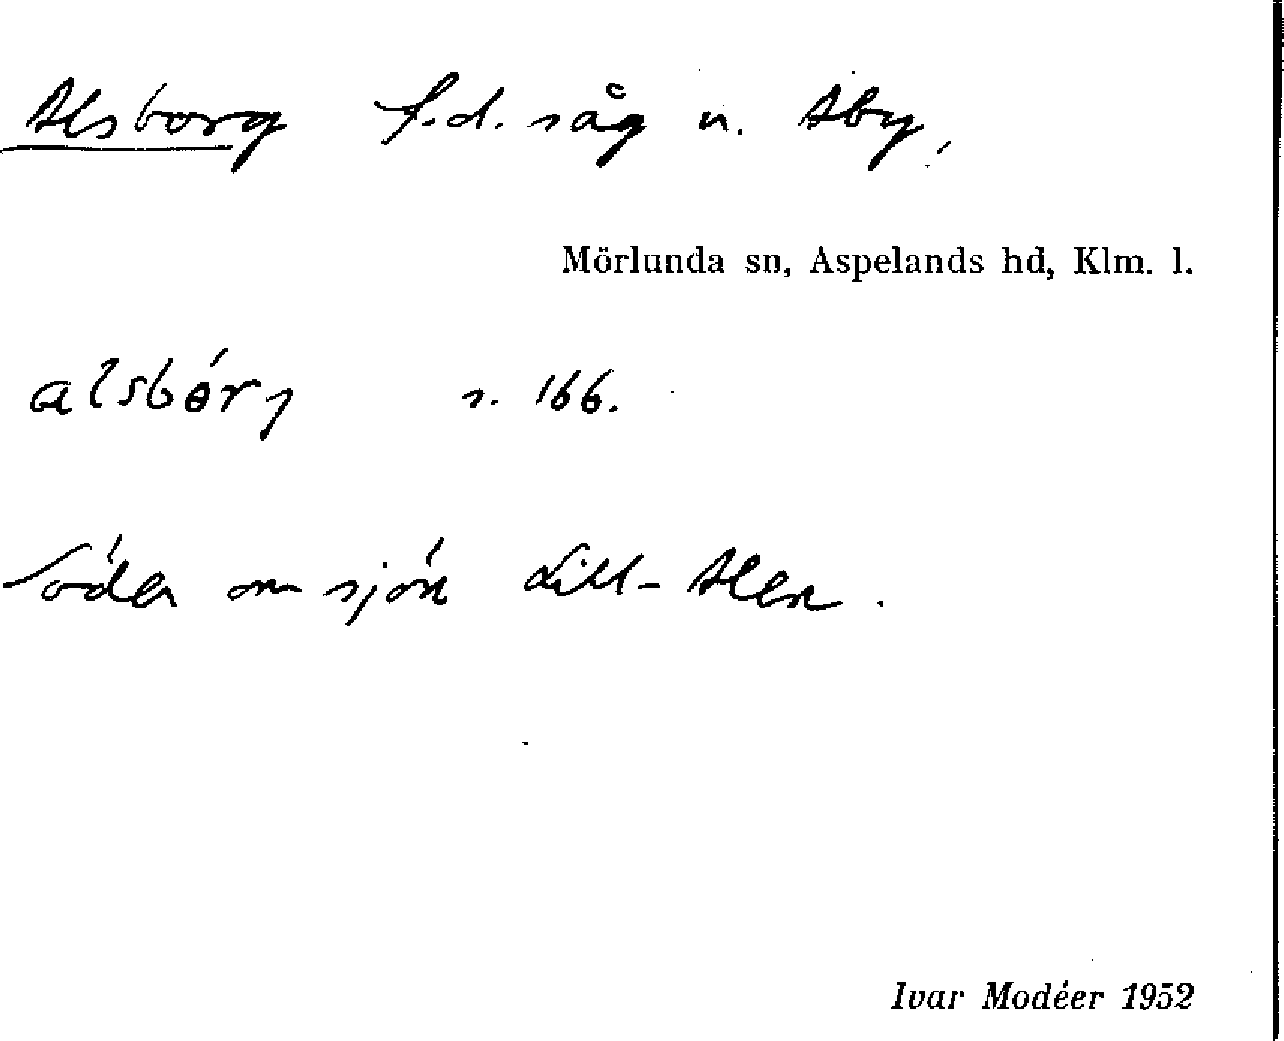 Alsborg f.d. såg u. Aby,
Mörlunda sn, Aspelands hd, Klm. l.
alsbórj s. 166.
Söder om sjön Lill-Alen.
Ivar Modéer 1952